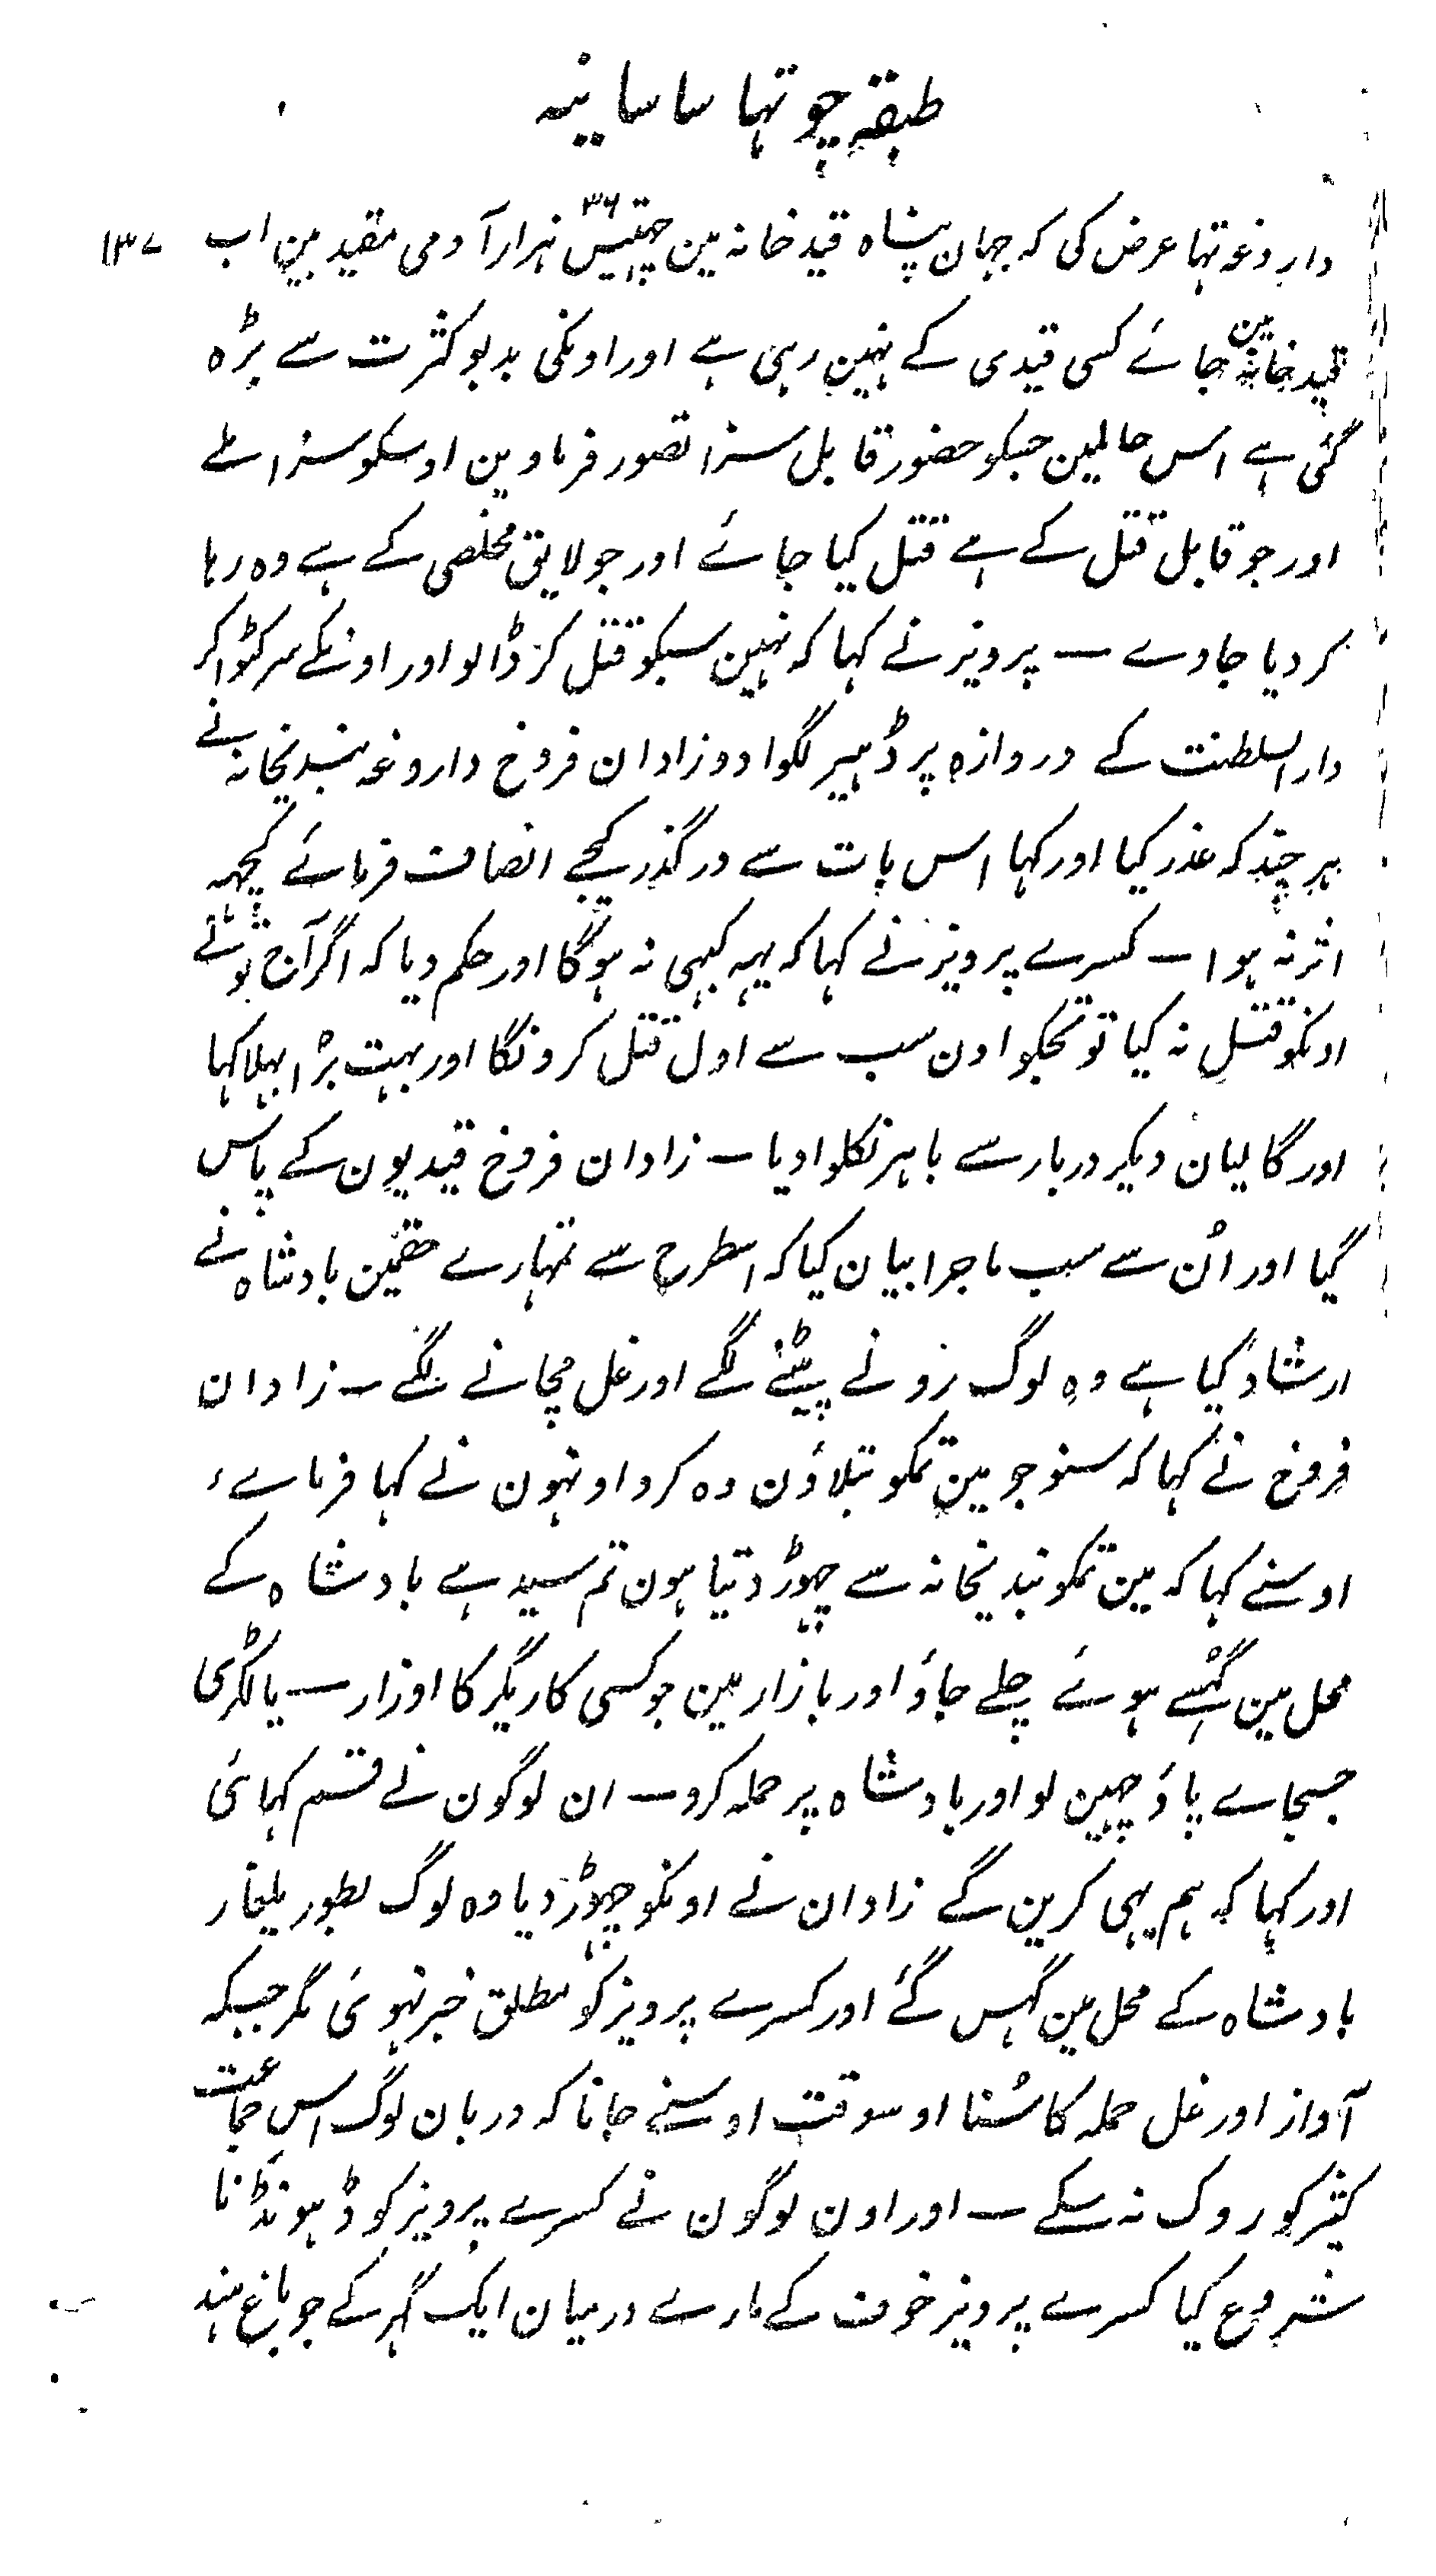 طبقہ چوتہا ساسانیہ
داروغہ تہا عرض کی کہ جہان پناہ قید خانہ مین چھتیس ۳۶ ہزار آدمی مقید ہین اب ۱۳۷
قید خانہ مین جائے کسی قیدی کے نہین رہی ہے اور اونکی بدبو کثرت سے بڑہ
گئی ہے اس حالمین جسکو حضور قابل سزا تصور فرماوین اوسکو سزا ملے
اور جو قابل قتل کے ہے قتل کیا جائے اور جو لایق مخلصی کے ہے وہ رہا
کر دیا جاوے ــ پرویز نے کہا کہ نہین سبکو قتل کر ڈالو اور اونکے سر کٹوا کر
دار السلطنت کے دروازہ پر ڈہیر لگوا دو زادان فروخ داروغہ بندیخانہ نے
ہر چند کہ عذر کیا اور کہا اس بات سے درگذر کیجے انصاف فرمائے کچہہ
اثر نہ ہوا ــ کسرے پرویز نے کہا کہ یہہ کبہی نہ ہوگا اور حکم دیا کہ اگر آج تو نے
اونکو قتل نہ کیا تو تجکو اون سب سے اول قتل کرونگا اور بہت بڑا بہلا کہا
اور گالیان دیکر دربار سے باہر نکلوا دیا ــ زادان فروخ قیدیون کے پاس
گیا اور اُن سے سب ماجرا بیان کیا کہ اسطرح سے تمہارے حقمین بادشاہ نے
ارشاد کیا ہے وہ لوگ رونے پیٹنے لگے اور غل مچانے لگے ــ زادان
فروخ نے کہا کہ سنو جو مین تمکو بتلاؤن وہ کرو اونہون نے کہا فرماےء
اوسنے کہا کہ مین تمکو بندیخانہ سے چہوڑ دیتا ہون تم سیدہے بادشاہ کے
محل مین گہسے ہوئے چلے جاؤ اور بازار مین جو کسی کاریگر کا اوزار ــ یا لکڑی
جسجاے پاؤ چہین لو اور بادشاہ پر حملہ کرو ــ ان لوگون نے قسم کہائی
اور کہا کہ ہم یہی کرین گے زادان نے اونکو چہوڑ دیا وہ لوگ بطور یلغار
بادشاہ کے محل مین گہس گئے اور کسرے پرویز کو مطلق خبر نہوئی مگر جبکہ
آواز اور غل حملہ کا سُنا اوسوقت اوسنے جانا کہ دربان لوگ اس جماعت
کثیر کو روک نہ سکے ــ اور اون لوگون نے کسرے پرویز کو ڈہونڈنا
شروع کیا کسرے پرویز خوف کے مارے درمیان ایک گہر کے جو باغ ہند